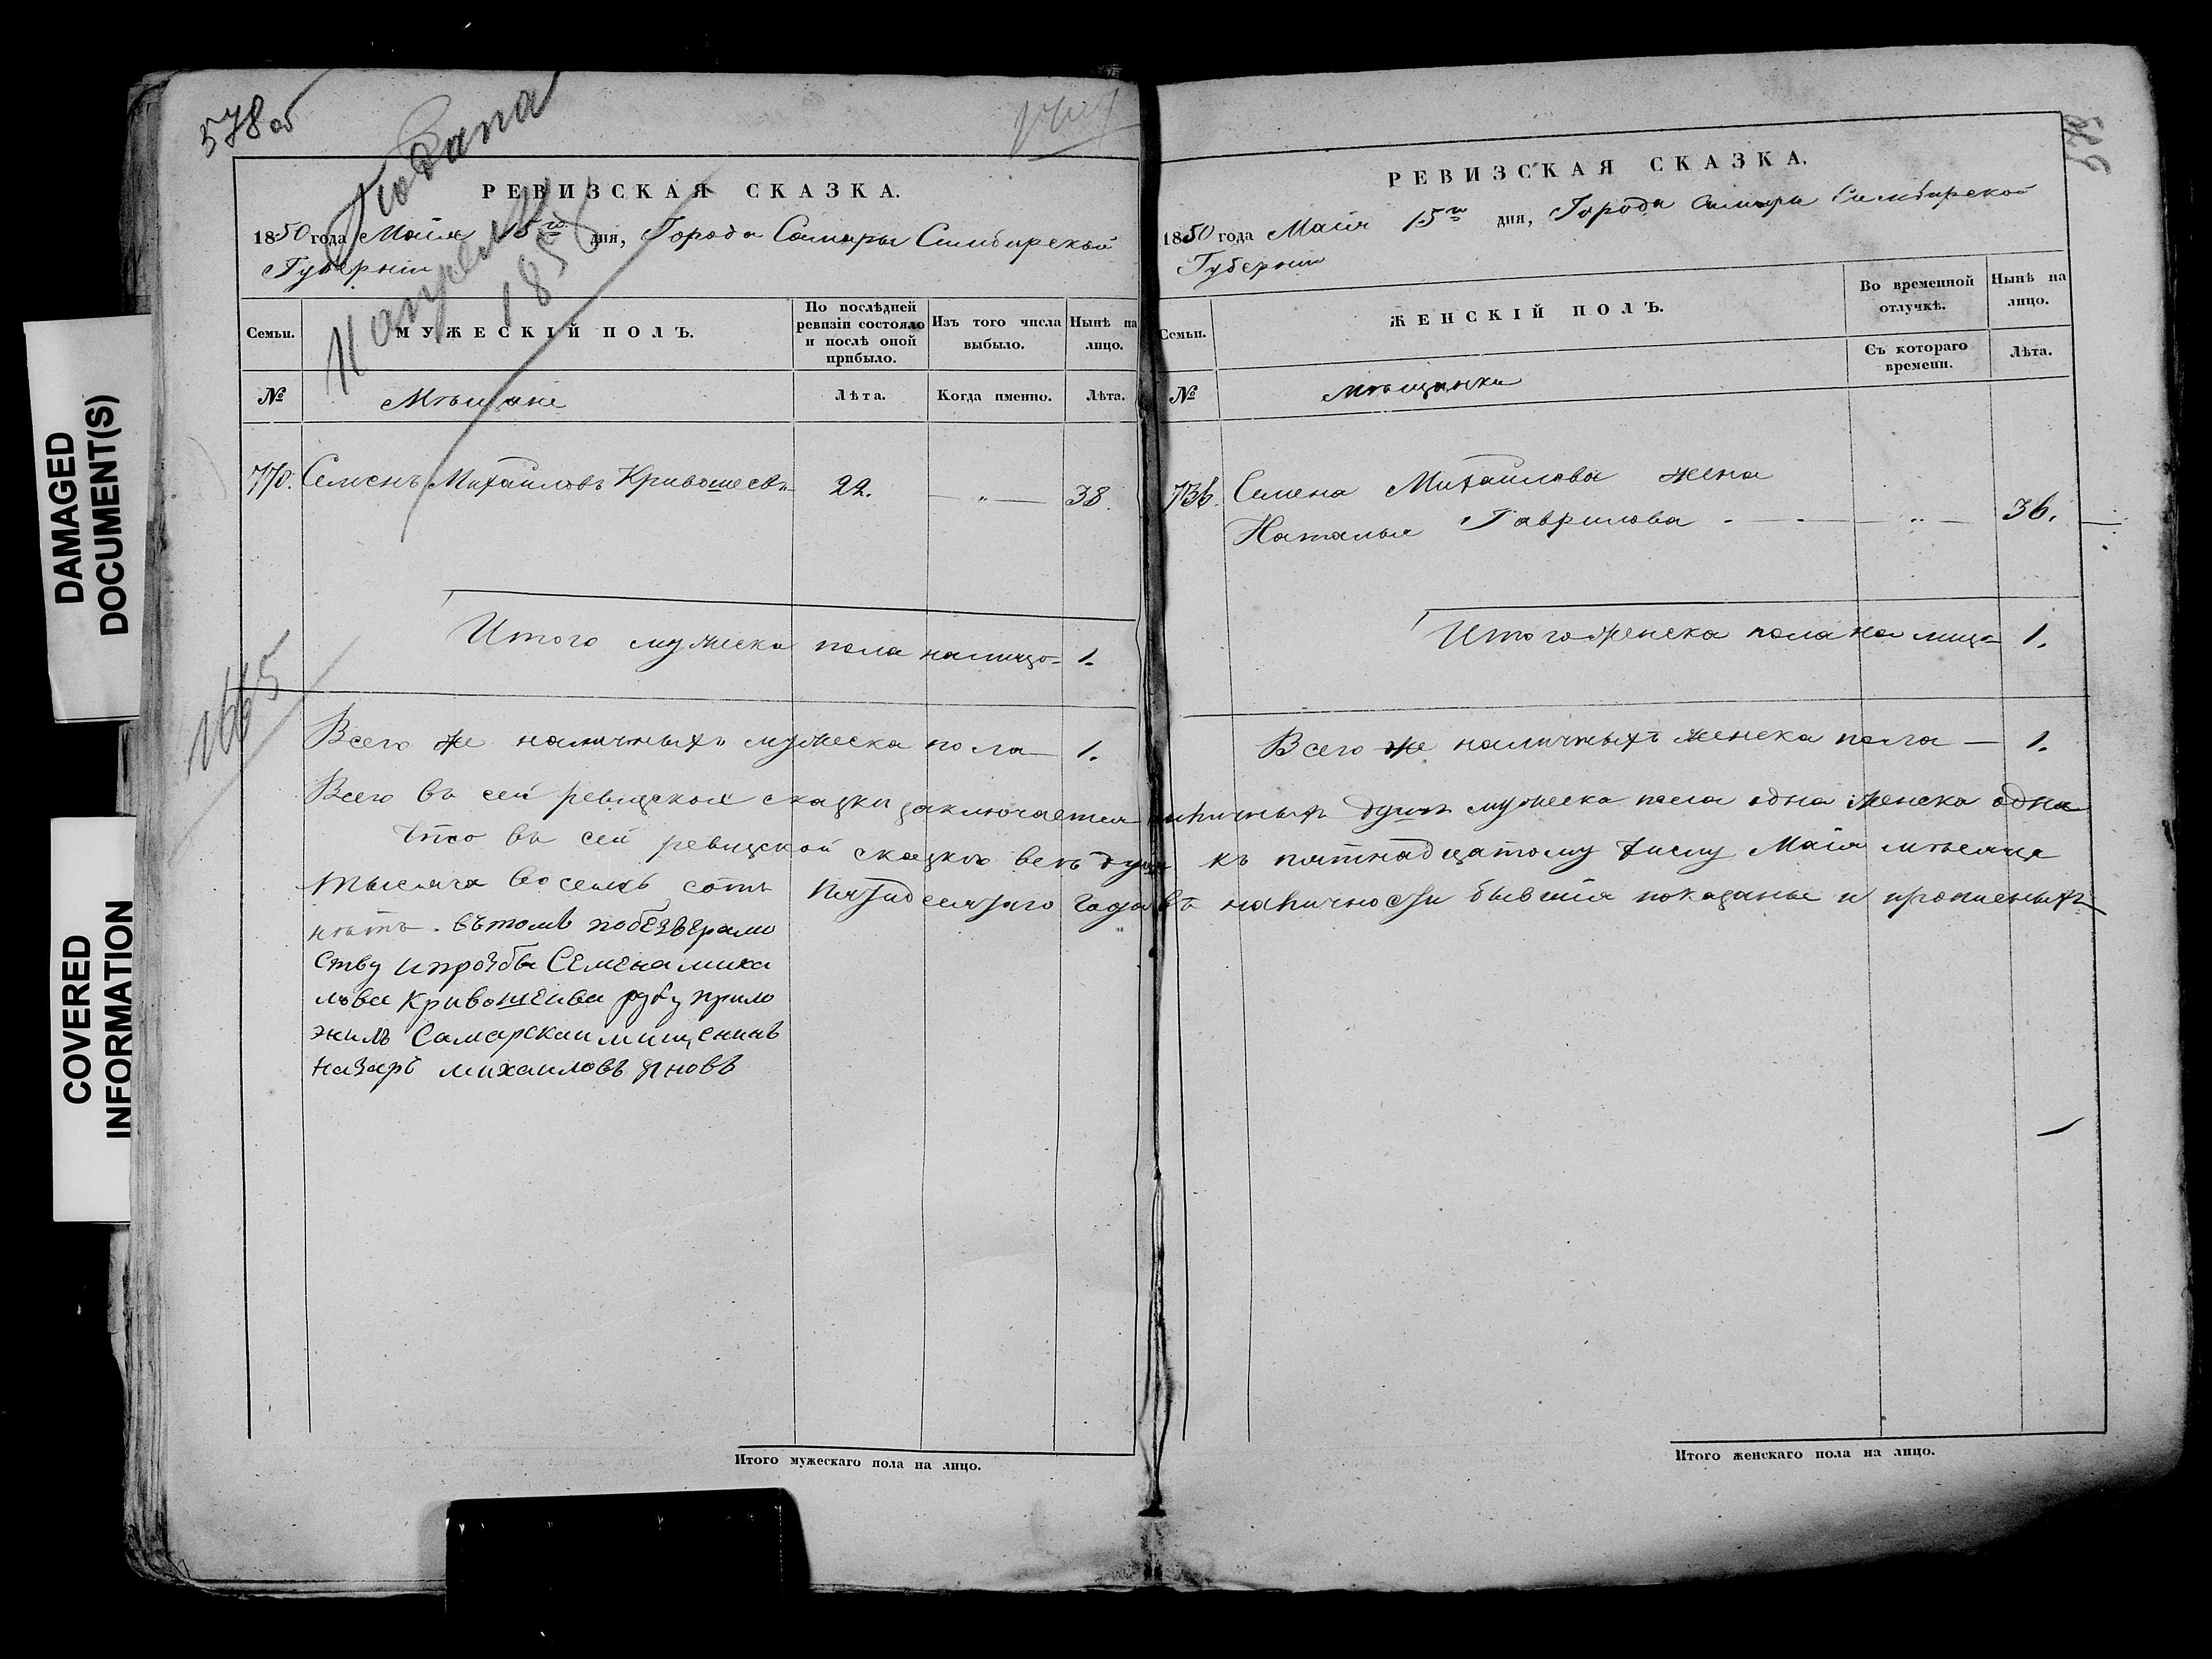 DAMAGED
DOCUMENT(S)
COVERED
INFORMATION
578 об
Подана
11 апреля
1851
РЕВИЗСКАЯ СКАЗКА.
1850 года Майя 15го дня, Города Самары Симбирской
Губерніи
Семьи.
МУЖЕСКІЙ ПОЛЪ.
По послѣдней ревизіи состояло и послѣ оной прибыло.
Изъ того числа выбыло.
Нынѣ на лицо.
№
Мѣщане
Лѣта.
Когда именно.
Лѣта.
770. Семенъ Михайловъ Кривошеевъ 22. — „ — 38.
Итого мужеска пола налицо - 1.
1665
Всего же наличныхъ мужеска пола — 1.
Итого мужескаго пола на лицо.
РЕВИЗСКАЯ СКАЗКА.
1850 года Майя 15го дня, Города Самары Симбирской
Губерніи
Семьи.
ЖЕНСКІЙ ПОЛЪ.
Во временной отлучкѣ.
Нынѣ на лицо.
Съ котораго времени.
Лѣта.
№
Мѣщанки
Семена Михайлова жена
Наталья Гаврилова - — „ — 36.
Итого женска пола на лицо 1.
Всего же наличныхъ женска пола — 1.
Всего въ сей ревизской сказки заключается наличныхъ душъ мужеска пола одна женска одна
Что въ сей ревизской сказкѣ всѣ души къ пятнадцатому числу Майя мѣсяца
тысяча восемь сотъ пятидесятаго года въ наличности бывшія показаны и прописныхъ
нѣтъ. вътомъ побезъграмо
ству ипрозбы Семена миха
лова Кривошеива руку прило
жилъ Самарскаи мищенинъ
назаръ михаиловъ Яновъ
Итого женскаго пола на лицо.